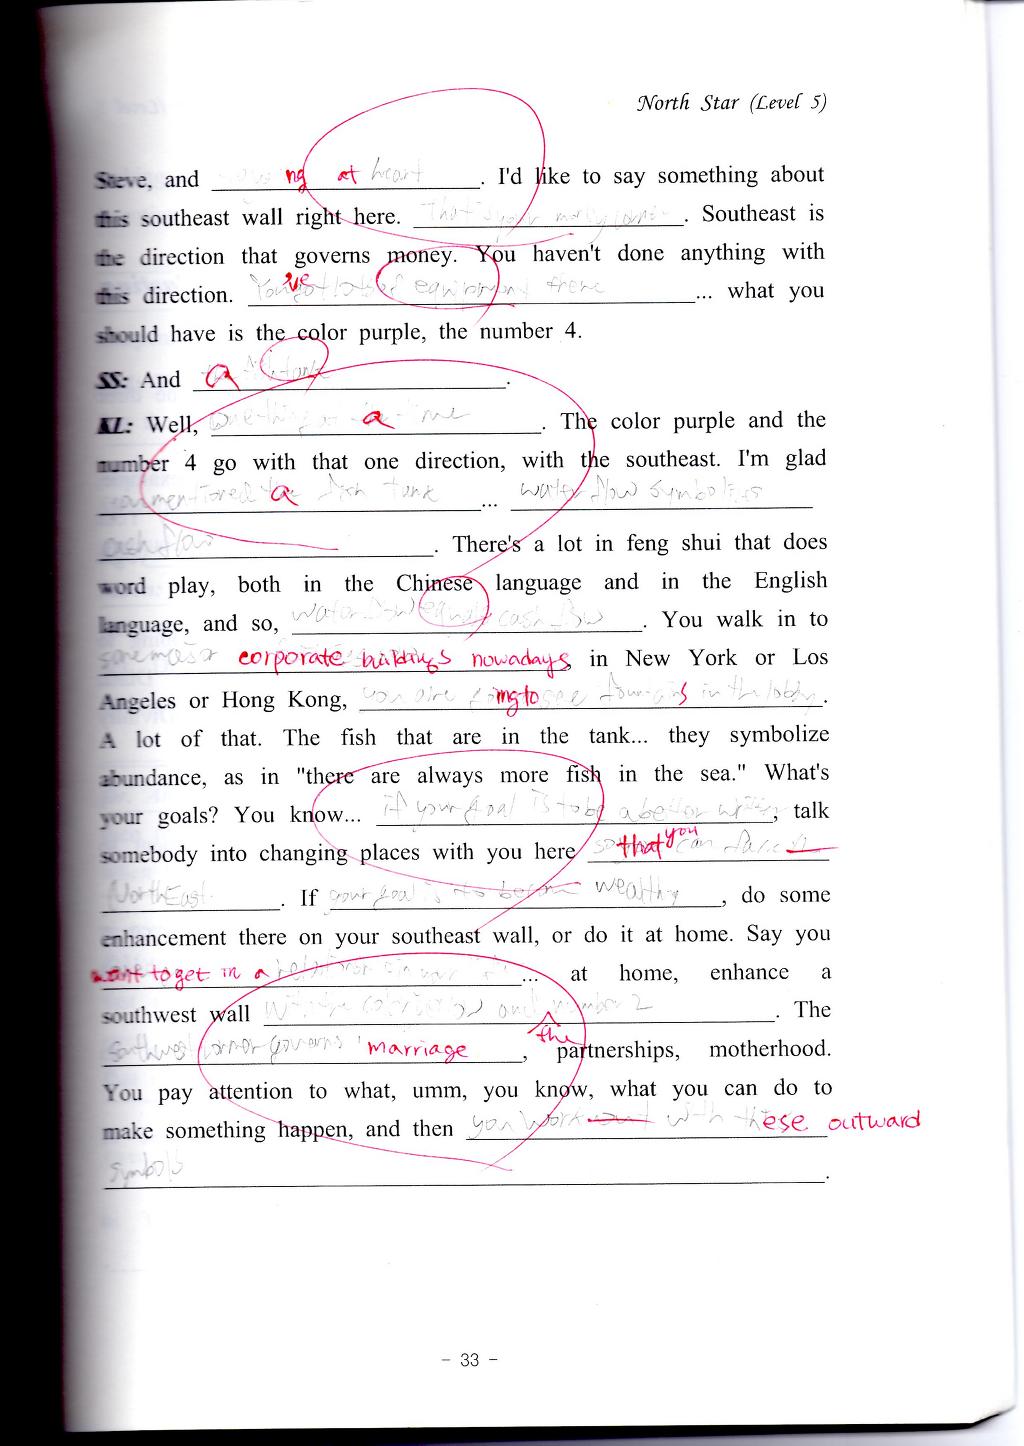 North Star (Level 5)
Steve, and ng at heart. I'd like to say something about
this southeast wall right here. That's your money corner. Southeast is
the direction that governs money. You haven't done anything with
this direction. You've got lots of equipment there ... what you
should have is the color purple, the number 4.
SS: And a tank.
KL: Well, one thing at a time. The color purple and the
number 4 go with that one direction, with the southeast. I'm glad
you mentioned a fish tank ... water flow symbolizes
cash flow. There's a lot in feng shui that does
word play, both in the Chinese language and in the English
language, and so, water flow equals cash flow. You walk in to
some major corporate buildings nowadays, in New York or Los
Angeles or Hong Kong, you are going to see fountains in the lobby.
A lot of that. The fish that are in the tank... they symbolize
abundance, as in "there are always more fish in the sea." What's
your goals? You know... if your goal is to be a better writer, talk
somebody into changing places with you here so that you can face
NorthEast. If your goal is to become wealthy, do some
enhancement there on your southeast wall, or do it at home. Say you
want to get in a ... at home, enhance a
southwest wall with the color and the number 2. The
Southwest corner governs marriage, partnerships, motherhood.
You pay attention to what, umm, you know, what you can do to
make something happen, and then you work with these outward
symbols.
- 33 -